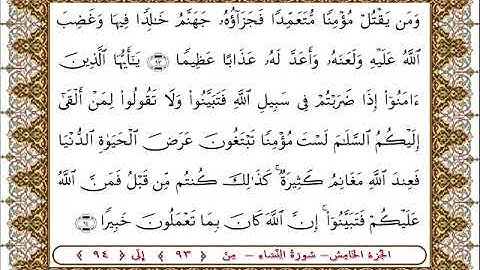 وَمَن يَقۡتُلۡ مُؤۡمِنٗا مُّتَعَمِّدٗا فَجَزَآؤُهُۥ جَهَنَّمُ خَٰلِدٗا فِيهَا وَغَضِبَ
ٱللَّهُ عَلَيۡهِ وَلَعَنَهُۥ وَأَعَدَّ لَهُۥ عَذَابًا عَظِيمٗا ٩٣ يَٰٓأَيُّهَا ٱلَّذِينَ
ءَامَنُوٓاْ إِذَا ضَرَبۡتُمۡ فِي سَبِيلِ ٱللَّهِ فَتَبَيَّنُواْ وَلَا تَقُولُواْ لِمَنۡ أَلۡقَىٰٓ
إِلَيۡكُمُ ٱلسَّلَٰمَ لَسۡتَ مُؤۡمِنٗا تَبۡتَغُونَ عَرَضَ ٱلۡحَيَوٰةِ ٱلدُّنۡيَا
فَعِندَ ٱللَّهِ مَغَانِمُ كَثِيرَةٞۚ كَذَٰلِكَ كُنتُم مِّن قَبۡلُ فَمَنَّ ٱللَّهُ
عَلَيۡكُمۡ فَتَبَيَّنُوٓاْۚ إِنَّ ٱللَّهَ كَانَ بِمَا تَعۡمَلُونَ خَبِيرٗا ٩٤
الجزء الخامس - سُورَةُ النِّسَاء - مِنْ ﴿ ٩٣ ﴾ إِلَى ﴿ ٩٤ ﴾